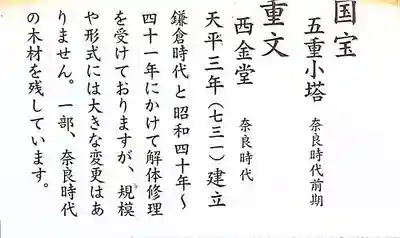 国宝
五重小塔 奈良時代前期
重文
西金堂 奈良時代
天平三年（七三一）建立
鎌倉時代と昭和四十年〜
四十一年にかけて解体修理
を受けておりますが、規模
や形式には大きな変更はあ
りません。一部、奈良時代
の木材を残しています。